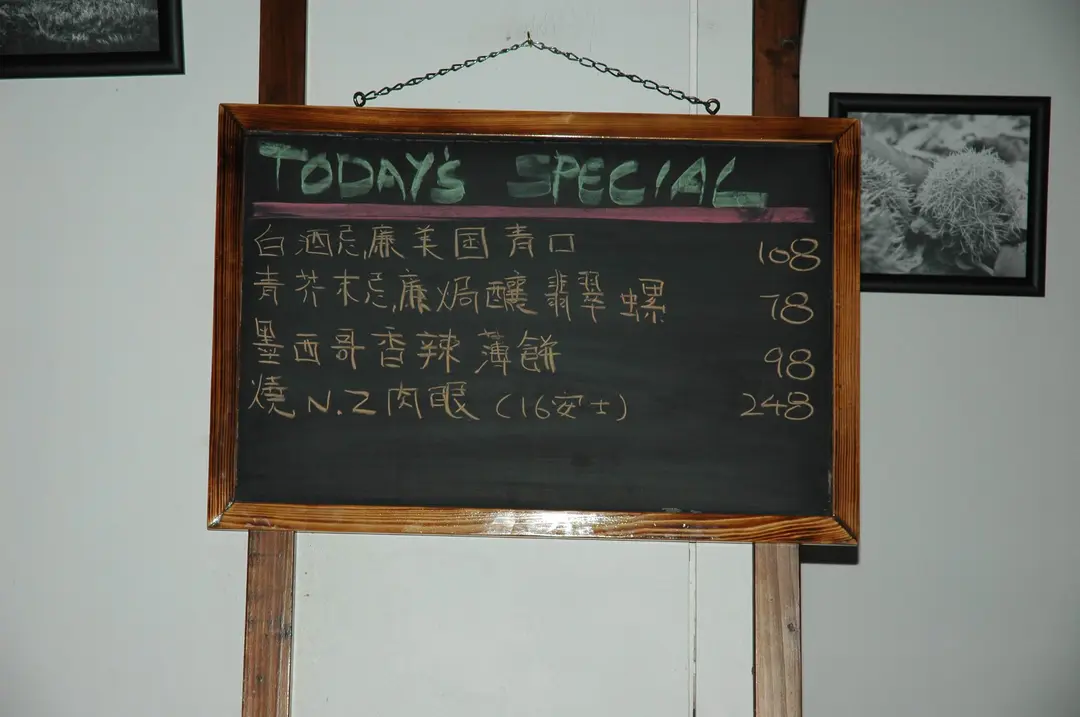 TODAY'S SPECIAL
白酒忌廉美国青口 108
青芥末忌廉焗釀翡翠螺 78
墨西哥香辣薄餅 98
燒N.Z肉眼(16安士) 248